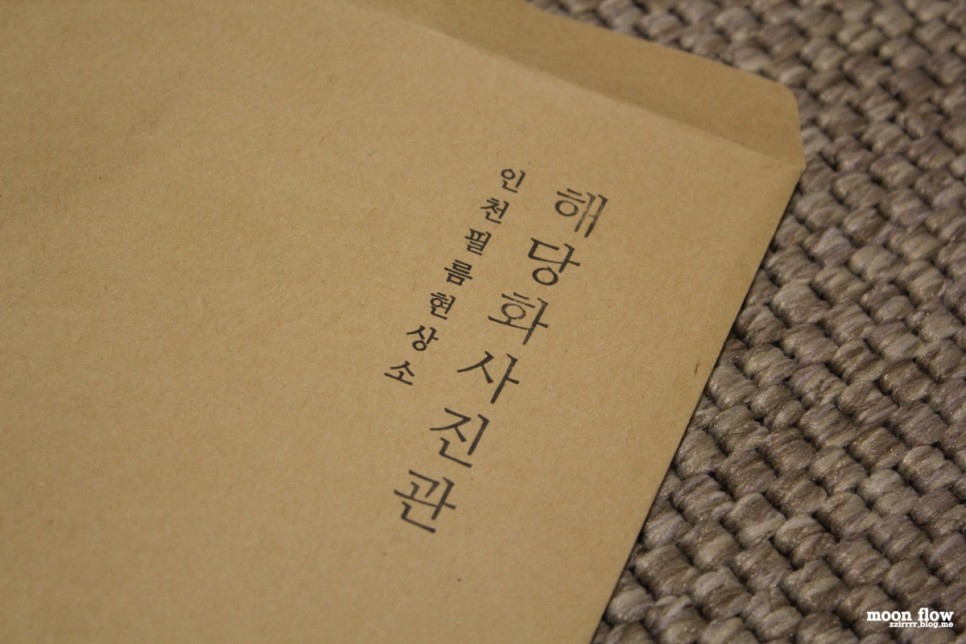 해당화사진관
인천필름현상소
moon flow
zzirrrr.blog.me